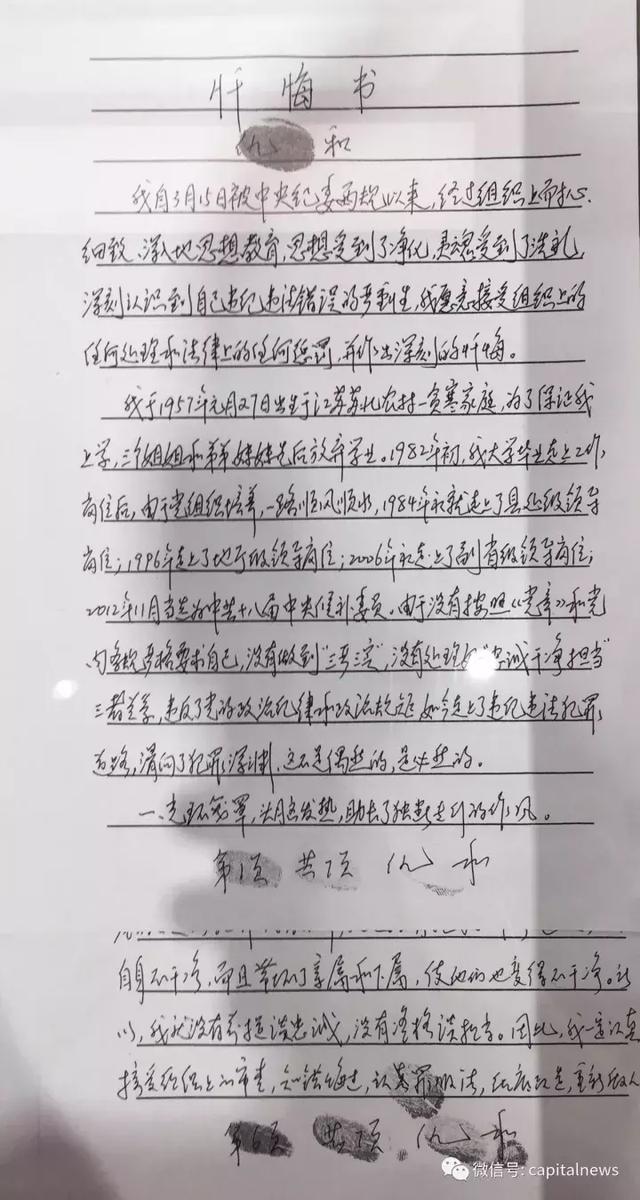 忏悔书
仇和
我自3月15日被中央纪委两规以来,经过组织上耐心、
细致、深入地思想教育,思想受到了净化,灵魂受到了洗礼,
深刻认识到自己违纪违法错误的严重性,我愿意接受组织上的
任何处理和法律上的任何惩罚,并作出深刻的忏悔。
我于1957年元月27日出生于江苏苏北农村一贫寒家庭,为了保证我
上学,三个姐姐和弟弟妹妹先后放弃学业。1982年初,我大学毕业走上工作
岗位后,由于党组织培养,一路顺风顺水,1984年就走上了县处级领导
岗位;1996年走上了地厅级领导岗位;2006年走上了副省级领导岗位;
2012年11月当选为中共十八届中央候补委员。由于没有按照《党章》和党
内各规严格要求自己,没有做到"三严三实",没有处理好"忠诚干净担当"
三者关系,违反了党的政治纪律和政治规矩,如今走上了违纪违法犯罪
道路,滑向了犯罪深渊,这不是偶然的,是必然的。
一、光环笼罩,头脑发热,助长了独断专行的作风。
第1页 共7页 仇和
自身不干净,而且带坏了亲属和下属,使他们也变得不干净。所
以,我就没有前提谈忠诚,没有资格谈担当。因此,我一定认真
接受组织上的审查,知错悔过,认罪服法,彻底改造,重新做人
第6页 共7页 仇和
微信号: capitalnews